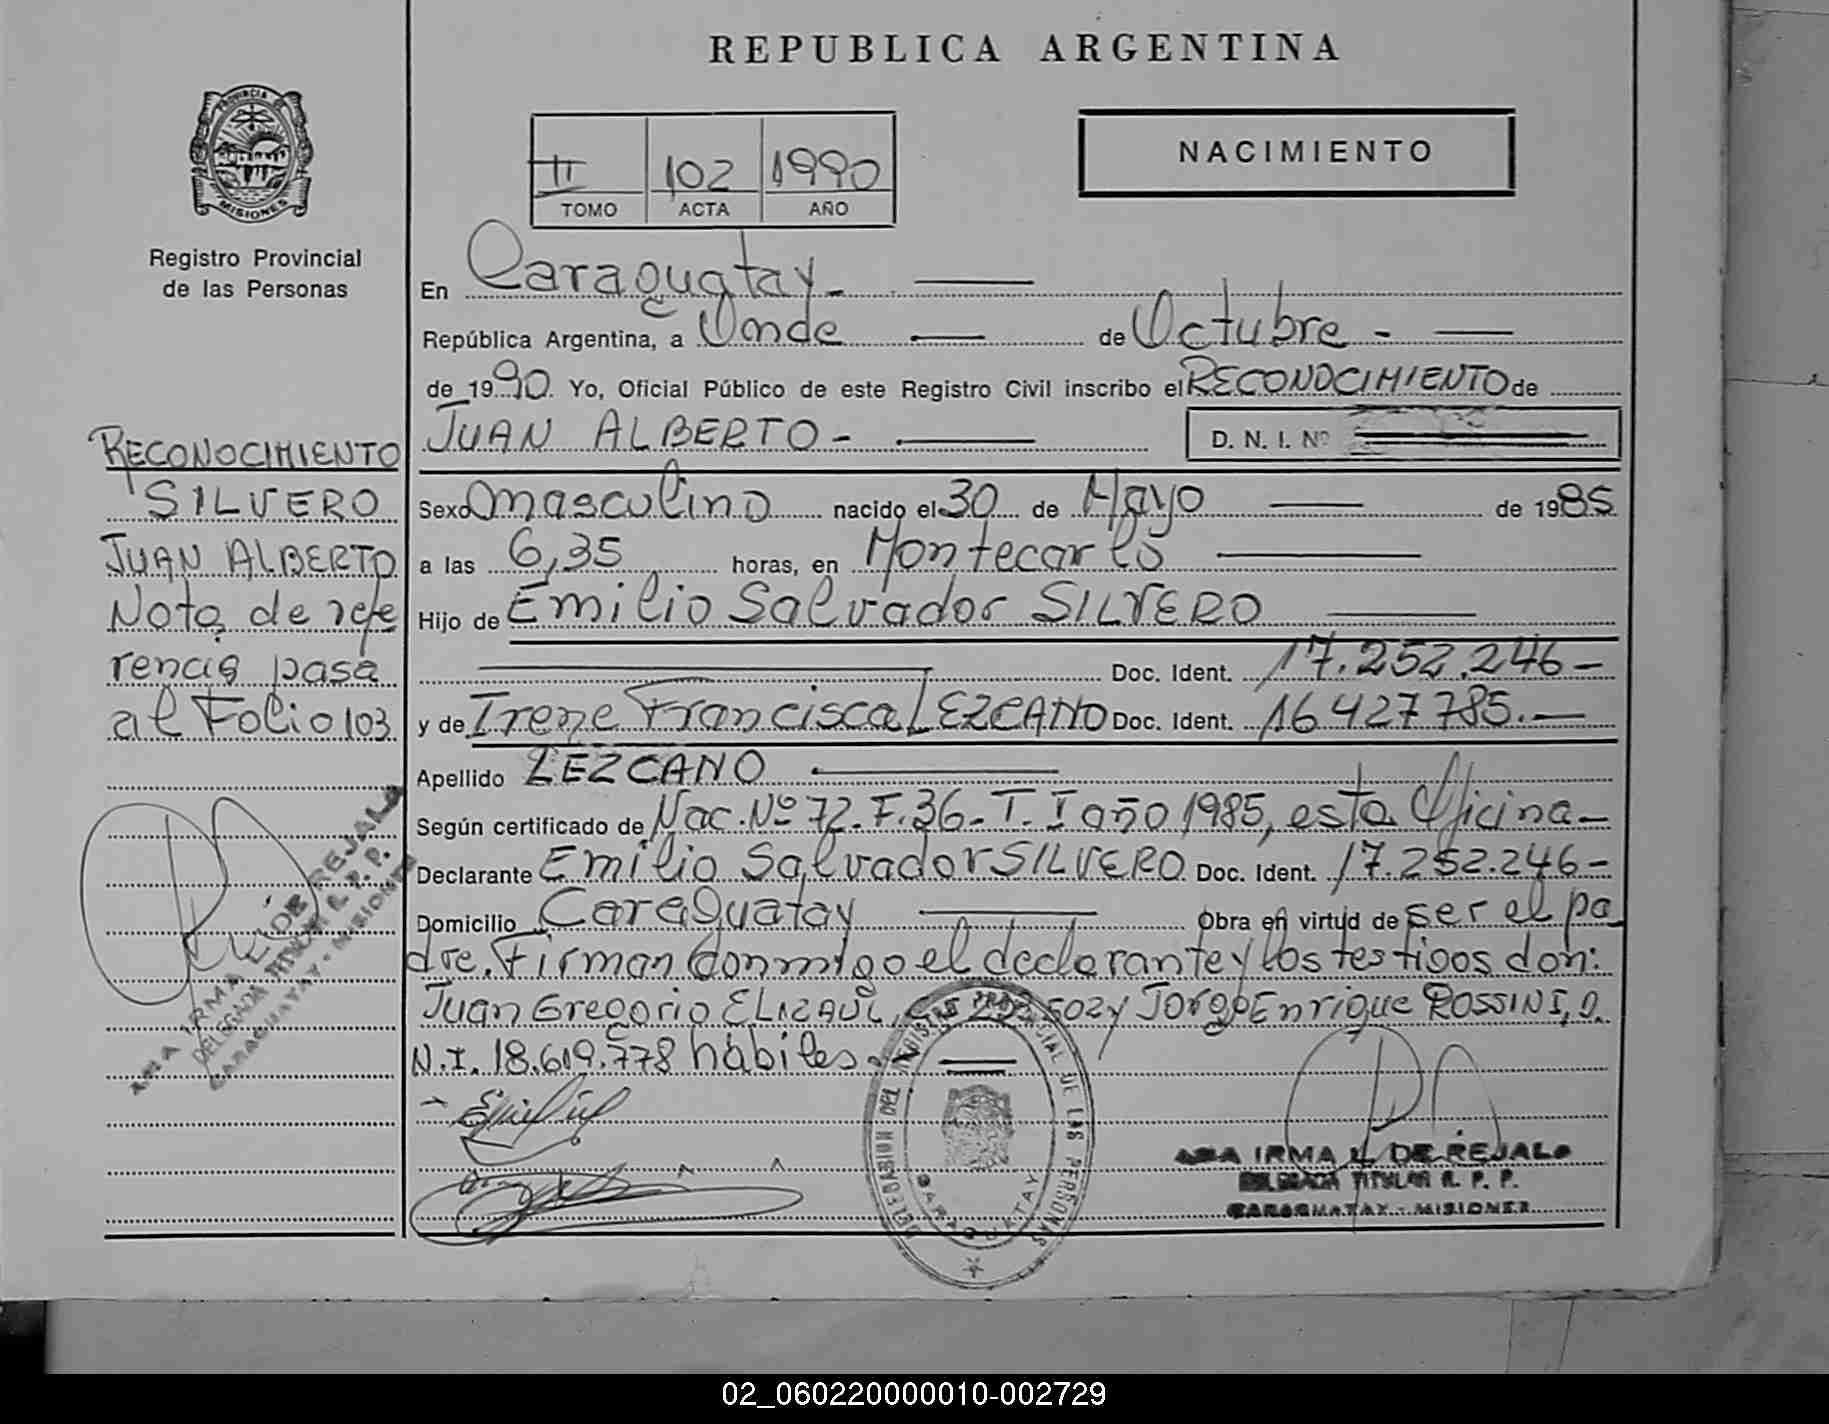 REPUBLICA ARGENTINA
PROVINCIA DE
MISIONES
Registro Provincial
de las Personas
II 102 1990
TOMO ACTA AÑO
NACIMIENTO
En Caraguatay
República Argentina, a Once de Octubre
de 1990 Yo, Oficial Público de este Registro Civil inscribo el RECONOCIMIENTO de
JUAN ALBERTO - D. N. I. Nº
Sexo masculino nacido el 30 de Mayo de 1985
a las 6,35 horas, en Montecarlo
Hijo de Emilio Salvador SILVERO
Doc. Ident. 17.252.246-
y de Irene Francisca LEZCANO Doc. Ident. 16427785.-
Apellido LEZCANO
Según certificado de Nac. Nº 72. F. 36- T. I año 1985, esta Oficina-
Declarante Emilio Salvador SILVERO Doc. Ident. 17.252.246-
Domicilio Caraguatay Obra en virtud de ser el pa
dre. Firman conmigo el declarante y los testigos don:
Juan Gregorio y Jorge Enrique ROSSINI, D.
N.I. 18.619.778 hábiles.
RECONOCIMIENTO
SILVERO
JUAN ALBERTO
Nota de refe
rencia pasa
al Folio 103
IRMA DE REJALA
DELEGADA TITULAR R. P. P.
CARAGUATAY - MISIONES
DELEGACION DEL REGISTRO PROVINCIAL DE LAS PERSONAS
CARAGUATAY
IRMA L. DE REJALA
DELEGADA TITULAR R. P. P.
CARAGUATAY - MISIONES
02_060220000010-002729